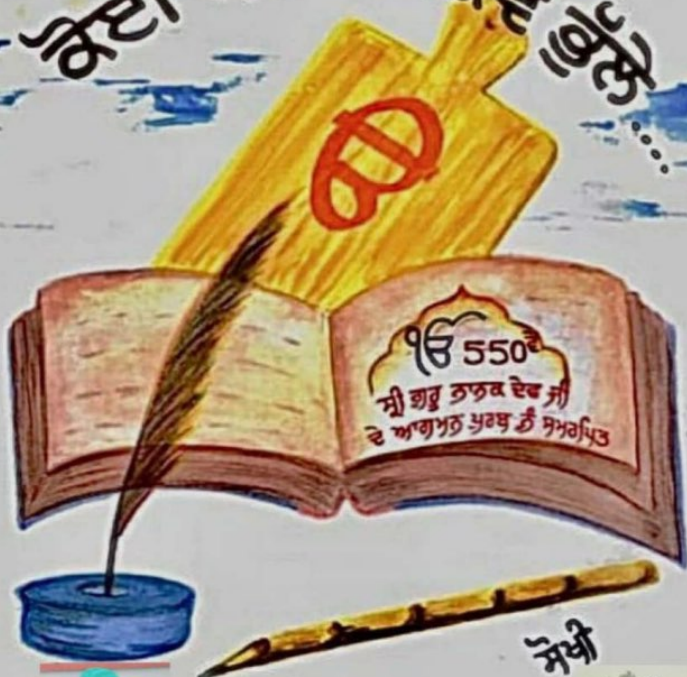 ਭੁੱਲੇ ....
ੴ 550ਵੇਂ
ਸ੍ਰੀ ਗੁਰੂ ਨਾਨਕ ਦੇਵ ਜੀ
ਦੇ ਆਗਮਨ ਪੁਰਬ ਨੂੰ ਸਮਰਪਿਤ
ਸੋਖੀ